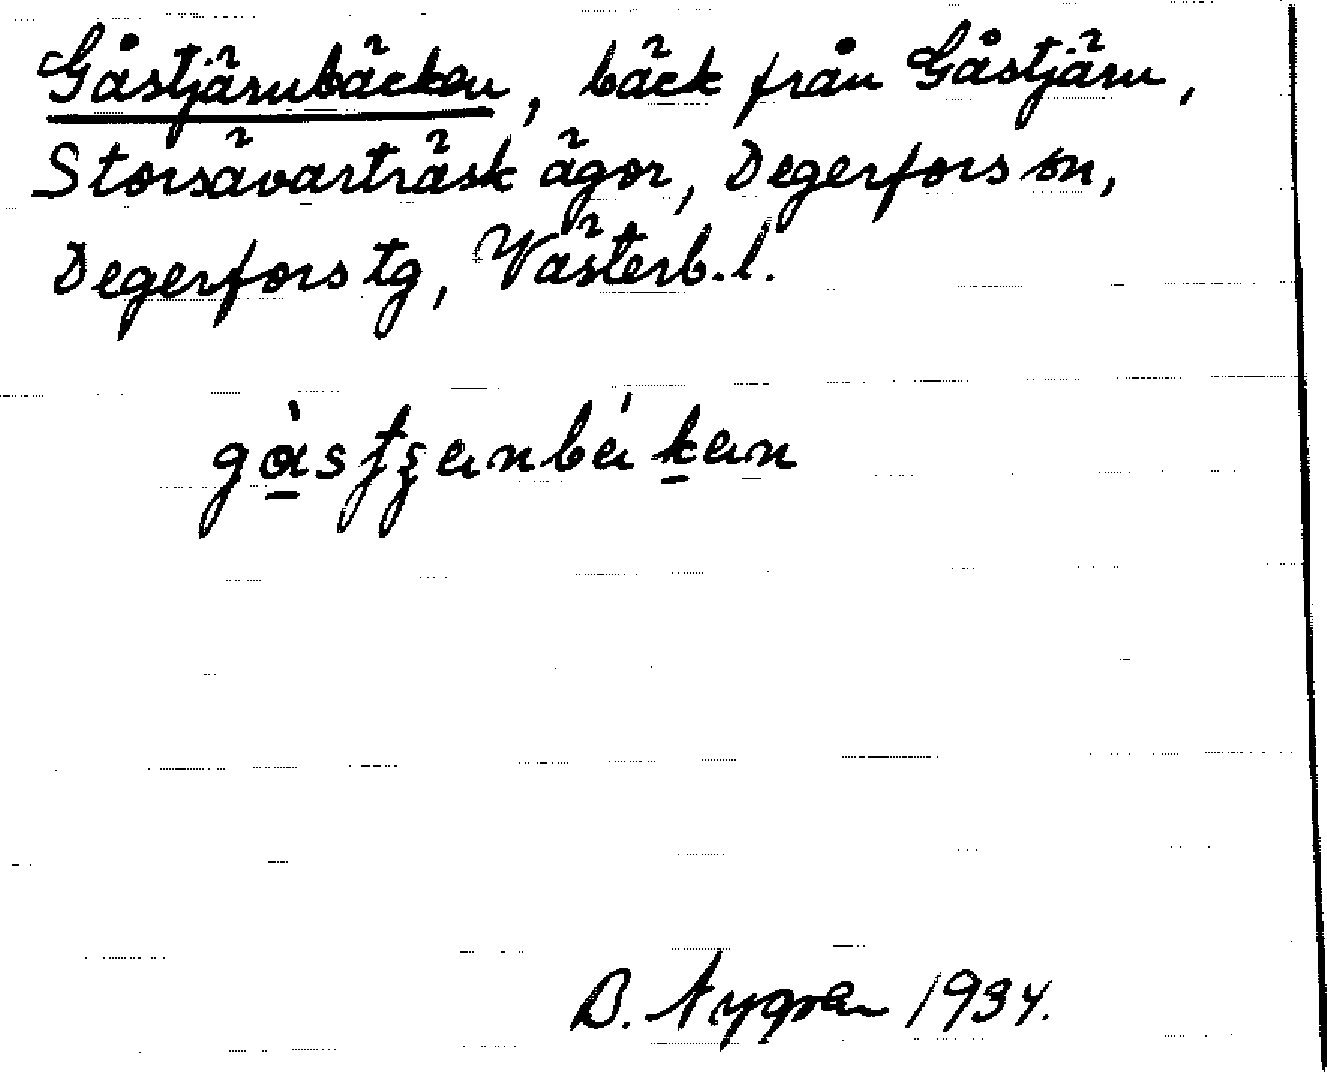 Gåstjärnbäcken, bäck från Gåstjärn,
Storsävarträsk ägor, Degerfors sn,
Degerfors tg, Västerb. l.
B. Nygren 1934.